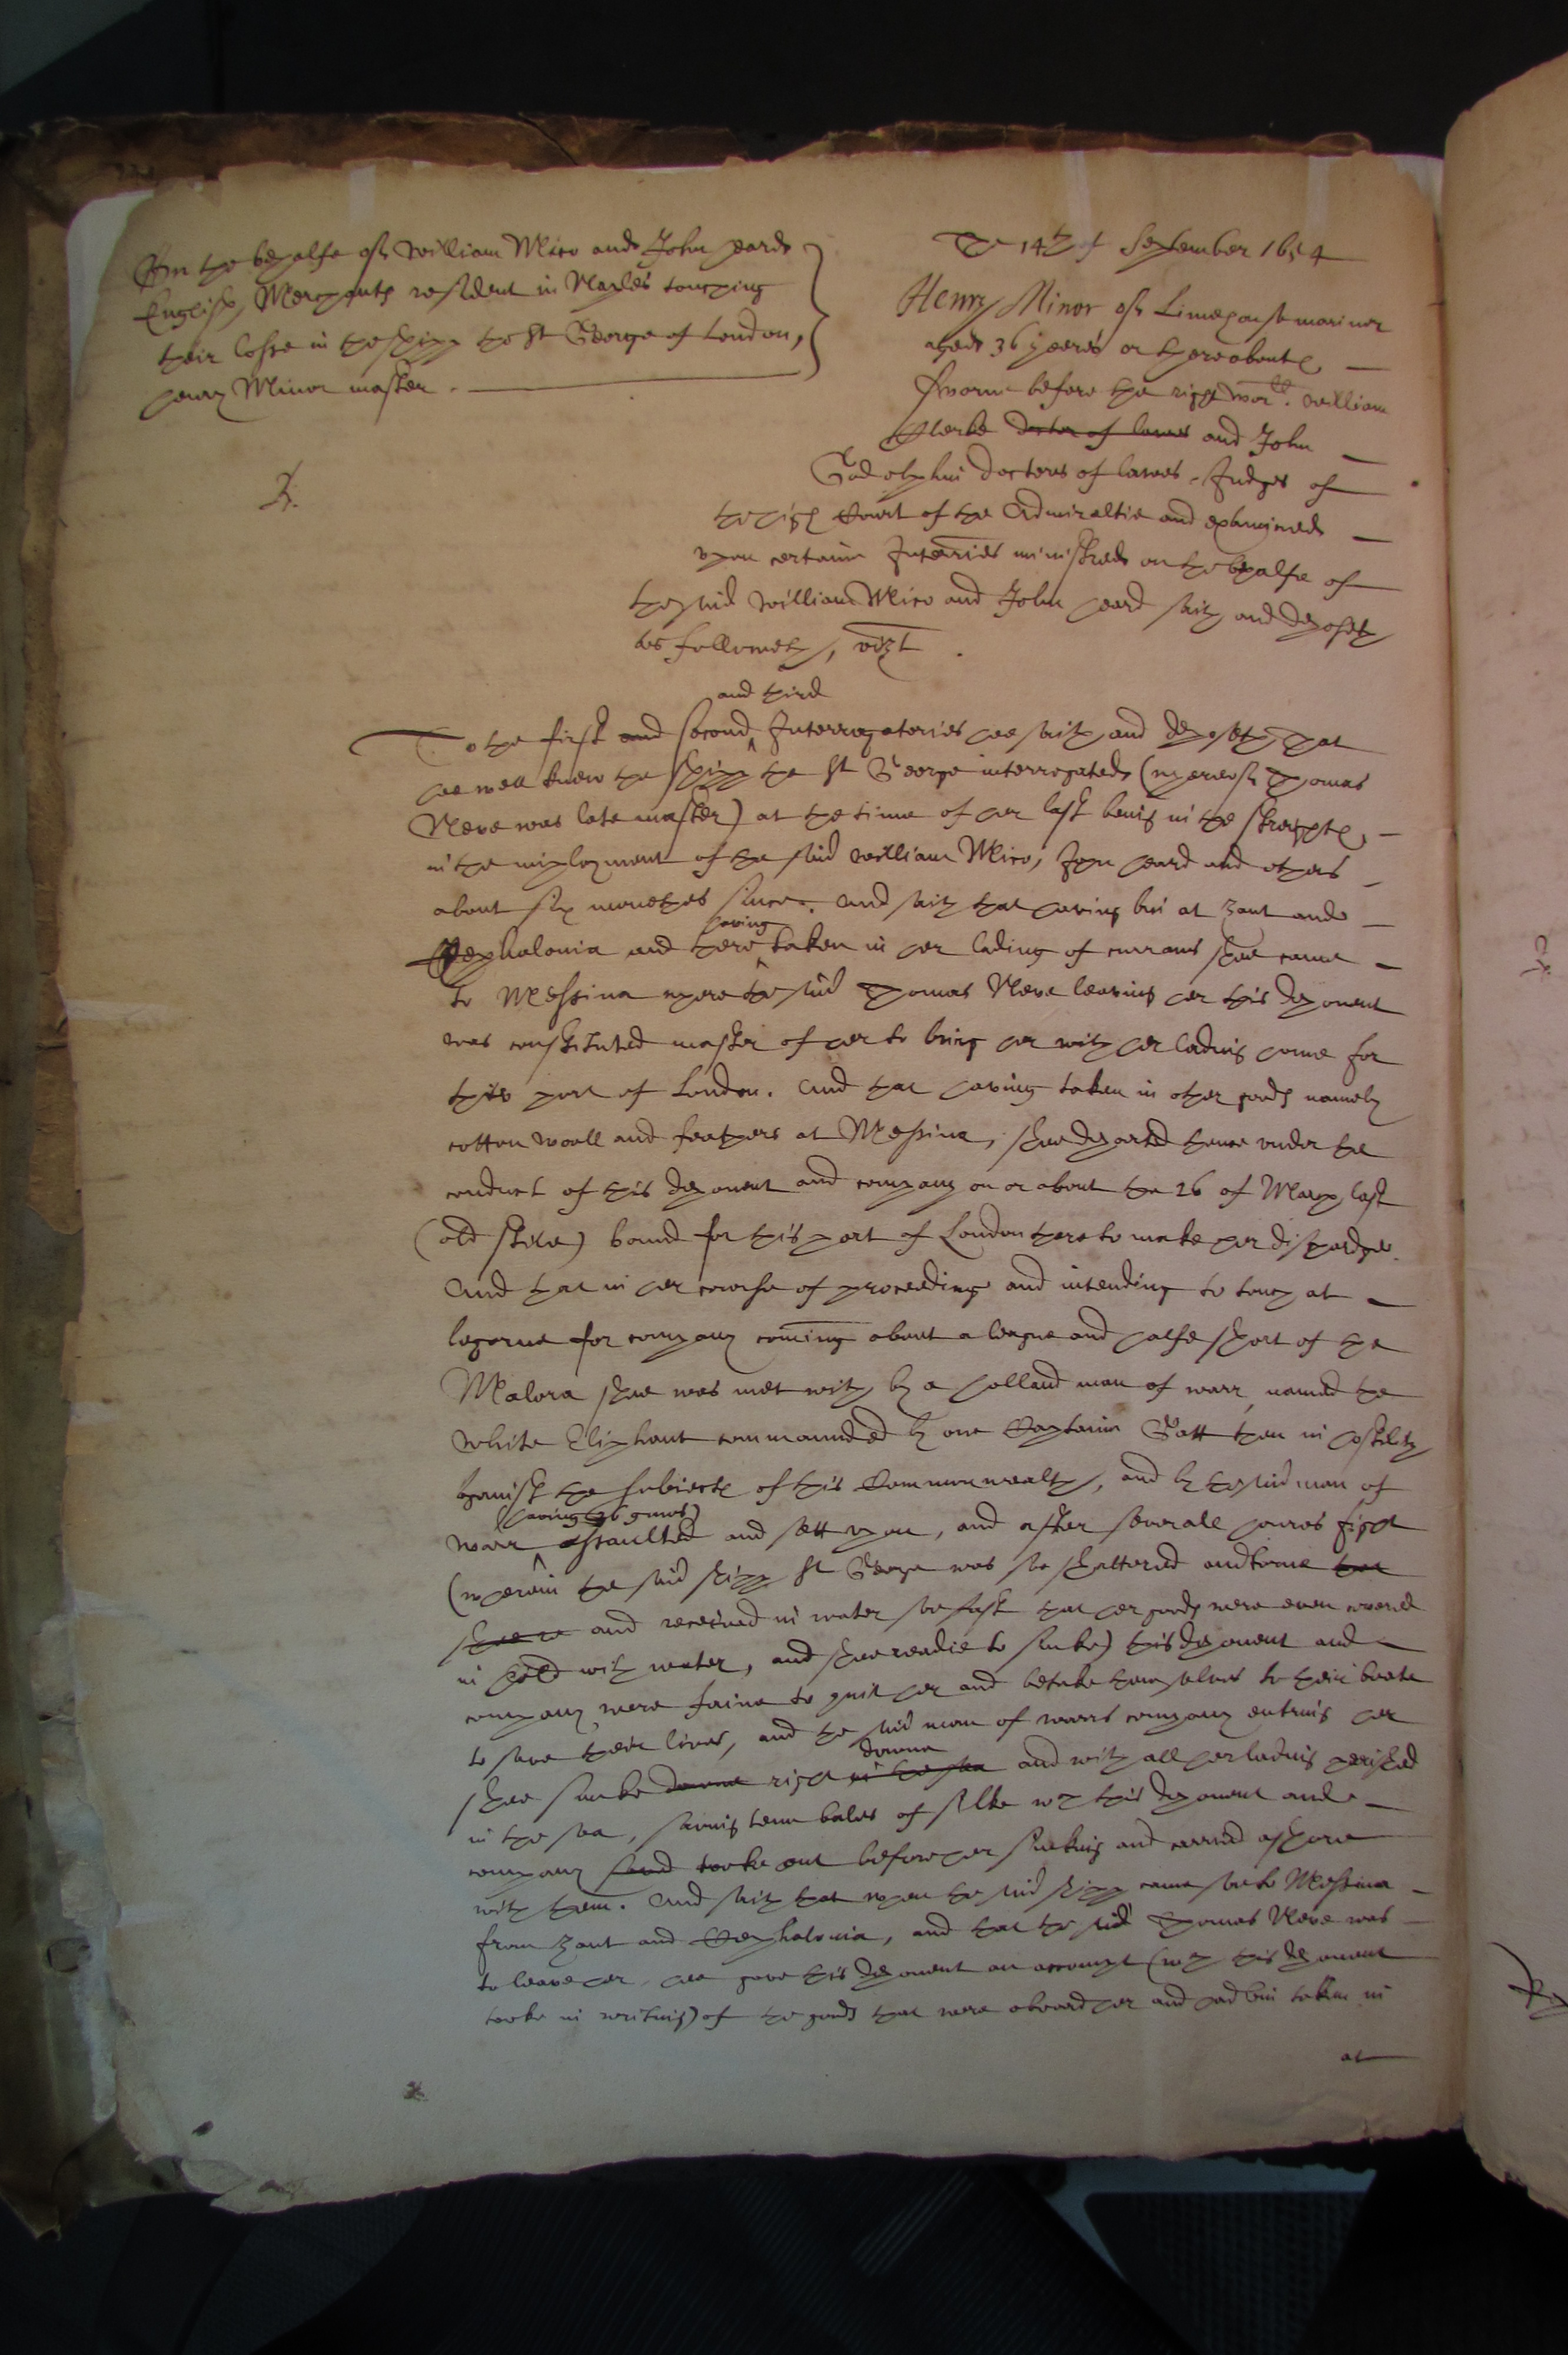 On the behalfe of William Mico and John Peard
English Merchants resident in Naples touching
their losse in the shipp the St George of London,
henry Minor master.
The 14th of September 1654
Henry Minor of Limehouse mariner
aged 36 yeeres or thereabouts
sworne before the right worll. William
Clerke doctor of lawes and John
Godolphin doctors of lawes, Judges of
the high Court of the Admiraltie and examined
upon certaine Interries ministred on the behalfe of
the said William Mico and John peard saith and deposeth
as followeth, vizt.
and third
To the first and second Interrogatories hee saith and deposeth, that
hee well knew the shipp the St George interrogated (whereof Thomas
Neve was late master) at the time of her last being in the streights,
in the imployment of the said William Mico, John peard and others
about six monethes since. And saith that having bin at Zant and
having
Cephalonia and there taken in her lading of currans shee came
to Messina where the said Thomas Neve leaving her this deponent
was constituted master of her to bring her with her lading home for
this port of London. And that having taken in other goods namely
cotton wooll and feathers at Messina, shee departed thence under the
conduct of this deponent and company on or about the 26 of March last
(old stile) bound for this port of London there to make her discharge.
And that in her course of proceeding and intending to touch at
legorne for company coming about a league and halfe short of the
Malora shee was met with by a holland man of warr named the
White Eliphant commaunded by one Captaine Gatt then in hostility
against the subiects of this Commonwealth, and by the said man of
(having 36 gunns)
warr assaulted and sett upon, and after severall houres fight
(wherein the said shipp St George was so shattered and torne that
shee re and received in water so fast that her goods were even covered
in hold with water, and shee readie to sinke) this deponent and
company were faine to quit her and betake themselves to their boate
to save their lives, and the said man of warrs company entring her
downe
shee sunke downe right in the sea and with all her lading perished
in the sea, saving tenn bales of silke wch this deponent and
company saved tooke out before her sinking and carried ashore
with them. And saith that when the said shipp came soe to Messina
from Zant and Cephalonia, and that the said Thomas Neve was
to leave her, hee gave this deponent an accompt (wch this deponent
tooke in writing) of the goods that were aboard her and had bin taken in
at